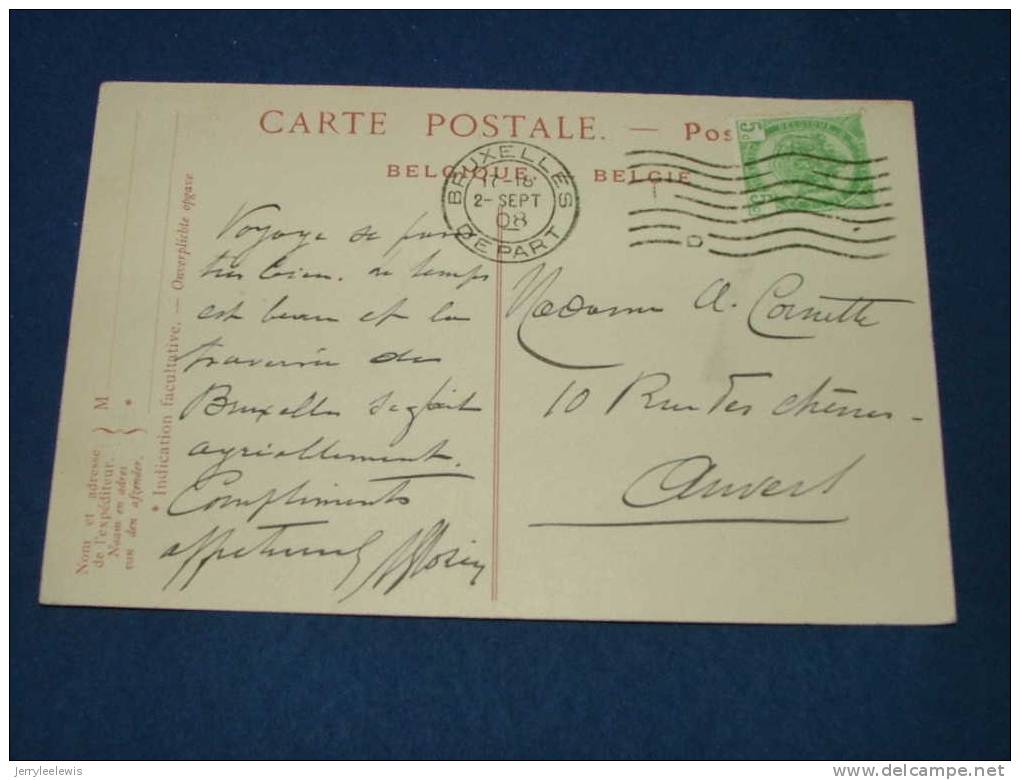 CARTE POSTALE. — Pos
BELGIQUE BELGIE
BRUXELLES
17-18
2- SEPT
08
DEPART
BELGIQUE
5c
5c
T
D
Voyage se fait
très bien. le temps
est beau et la
traversée de
Bruxelles se fait
agréablement.
Compliments
Madame A. Cornette
10 Rue des Chênes-
Anvers
Nom et adresse
de l'expéditeur.
Naam en adres
van den afzender.
} M
} *
* Indication facultative. — Onverplichte opgave
jerryleelewis
delcampe.net